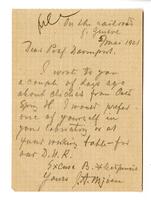 On the railroad
5 Mai 1901
Dear Prof Davenport.
I wrote to you
a couple of days ago
about chicks from Cold
Spg H. I would prefer
one of yourself in
your laboratory or at
your working table for
our
Excuse B.
Yours